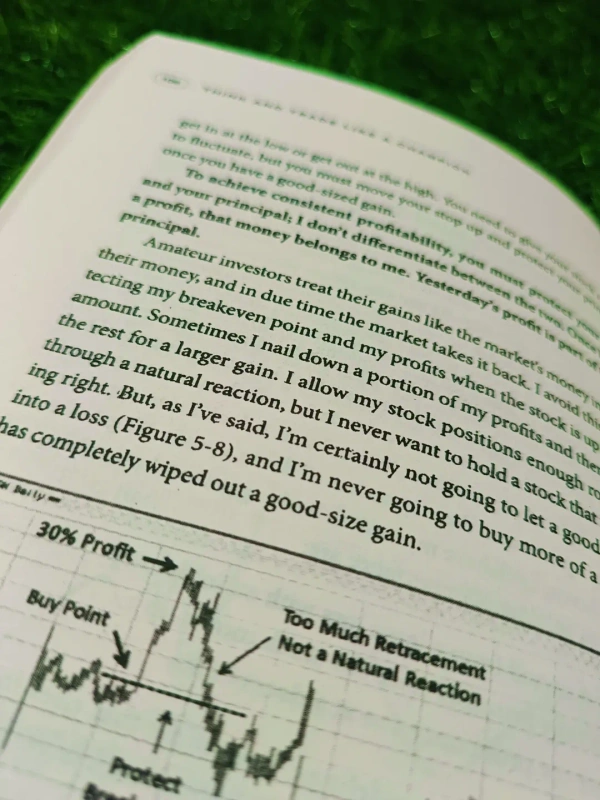 THINK AND TRADE LIKE A CHAMPION
get in at the low or get out at the high. You need to give your
to fluctuate, but you must move your stop up and protect your
once you have a good-sized gain.
To achieve consistent profitability, you must protect your
and your principal; I don't differentiate between the two. Once
a profit, that money belongs to me. Yesterday's profit is part of
principal.
Amateur investors treat their gains like the market's money
their money, and in due time the market takes it back. I avoid this
tecting my breakeven point and my profits when the stock is up
amount. Sometimes I nail down a portion of my profits and then
the rest for a larger gain. I allow my stock positions enough ro
through a natural reaction, but I never want to hold a stock that
ing right. But, as I've said, I'm certainly not going to let a good
into a loss (Figure 5-8), and I'm never going to buy more of a
has completely wiped out a good-size gain.
Daily
30% Profit
Buy Point
Too Much Retracement
Not a Natural Reaction
Protect